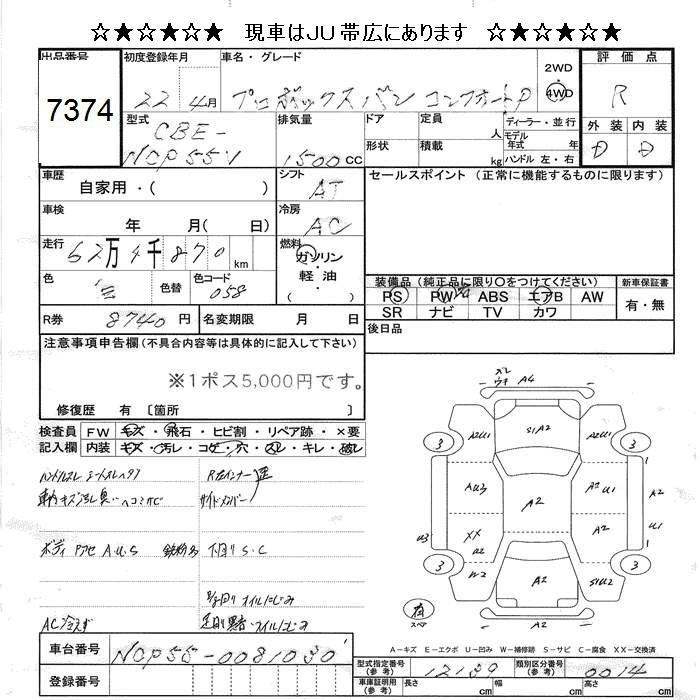 ☆★☆★☆★ 現車はJU帯広にあります ☆★☆★☆★
出品番号
7374
初度登録年月
22 年 4月
車名・グレード
プロボックスバン コンフォートP
2WD
4WD
評価点
R
外装 内装
D D
型式
CBE-
NCP55V
排気量
1500cc
ドア
形状
定員
人
積載
kg
ディーラー・並行
モデル
年式 年
ハンドル 左・右
車歴
自家用・( )
シフト
AT
車検
年 月( 日)
冷房
AC
走行
62万4千870km
燃料
ガソリン
・
軽油
色
色替
色コード
058
R券
8740円
名変期限 月 日
セールスポイント(正常に機能するものに限ります)
装備品(純正品に限り○をつけてください)
PS PW ABS エアB AW
SR ナビ TV カワ
新車保証書
有・無
後日品
注意事項申告欄(不具合内容等は具体的に記入して下さい)
※1ポス5,000円です。
修復歴 有〔箇所 〕
検査員
記入欄
FW キズ・飛石・ヒビ割・リペア跡・×要
内装 キズ・汚レ・コゲ・穴・スレ・キレ・破レ
ハンドルスレ シートスレヘタリ
ボディ アセ A.U.S
下回りS.C
サイドメンバー
AC冷えず
車台番号
NCP55-0081030
登録番号
A4
S1 A2
A2U1
A2U1
3
3
AU3
A2
A2
U1
XX
U2
A2
A2
U1
U3
W2
A2
S1U2
3
3
A2
有
スペア
A-キズ E-エクボ U-凹み W-補修跡 S-サビ C-腐食 XX-交換済
型式指定番号
(参考)
12139
類別区分番号
(参考)
0014
車庫証明用
(参考)
長さ cm
幅 cm
高さ cm